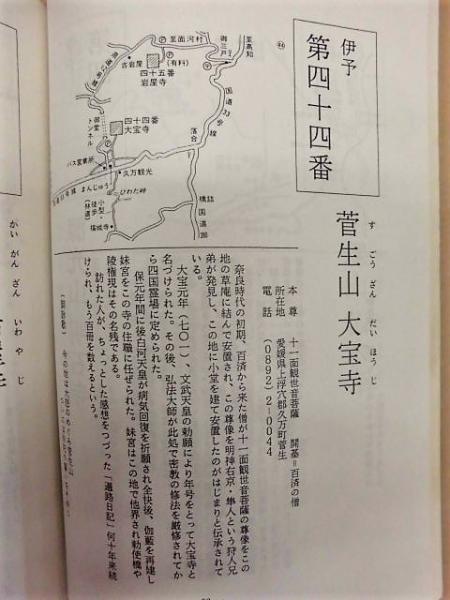 伊予
第四十四番
菅生山 大宝寺
すごうざん だいほうじ
本尊 十一面観世音菩薩 開基=百済の僧
所在地 愛媛県上浮穴郡久万町菅生
電話 (0892)2-0044
奈良時代の初期、百済から来た僧が十一面観世音菩薩の尊像をこの
地の草庵に結んで安置され、この尊像を明神右京・隼人という狩人兄
弟が発見し、この地に小堂を建て安置したのがはじまりと伝承されて
いる。
大宝元年(七〇一)、文武天皇の勅願により年号をとって大宝寺と
名づけられた。その後、弘法大師が此処で密教の修法を厳修されてか
ら四国霊場に定められた。
保元年間に後白河天皇が病気回復を祈願され全快後、伽藍を再建し
妹宮をこの寺の住職に任ぜられた。妹宮はこの地で他界され勅使橋や
陵権現はその名残である。
訪れた人が、ちょっとした感想をつづった「遍路日記」何十年来続
けられ、もう百冊を数えるという。
至面河村
御三戸
至高知
(有料)
古岩屋
四十五番
岩屋寺
国道33号線
四十四番
大宝寺
トンネル
落合
バス営業所
久万観光
ひわた峠
まんじゅう
小型・徒歩
(林道)
橋詰
国道
かいがんざん いわやじ